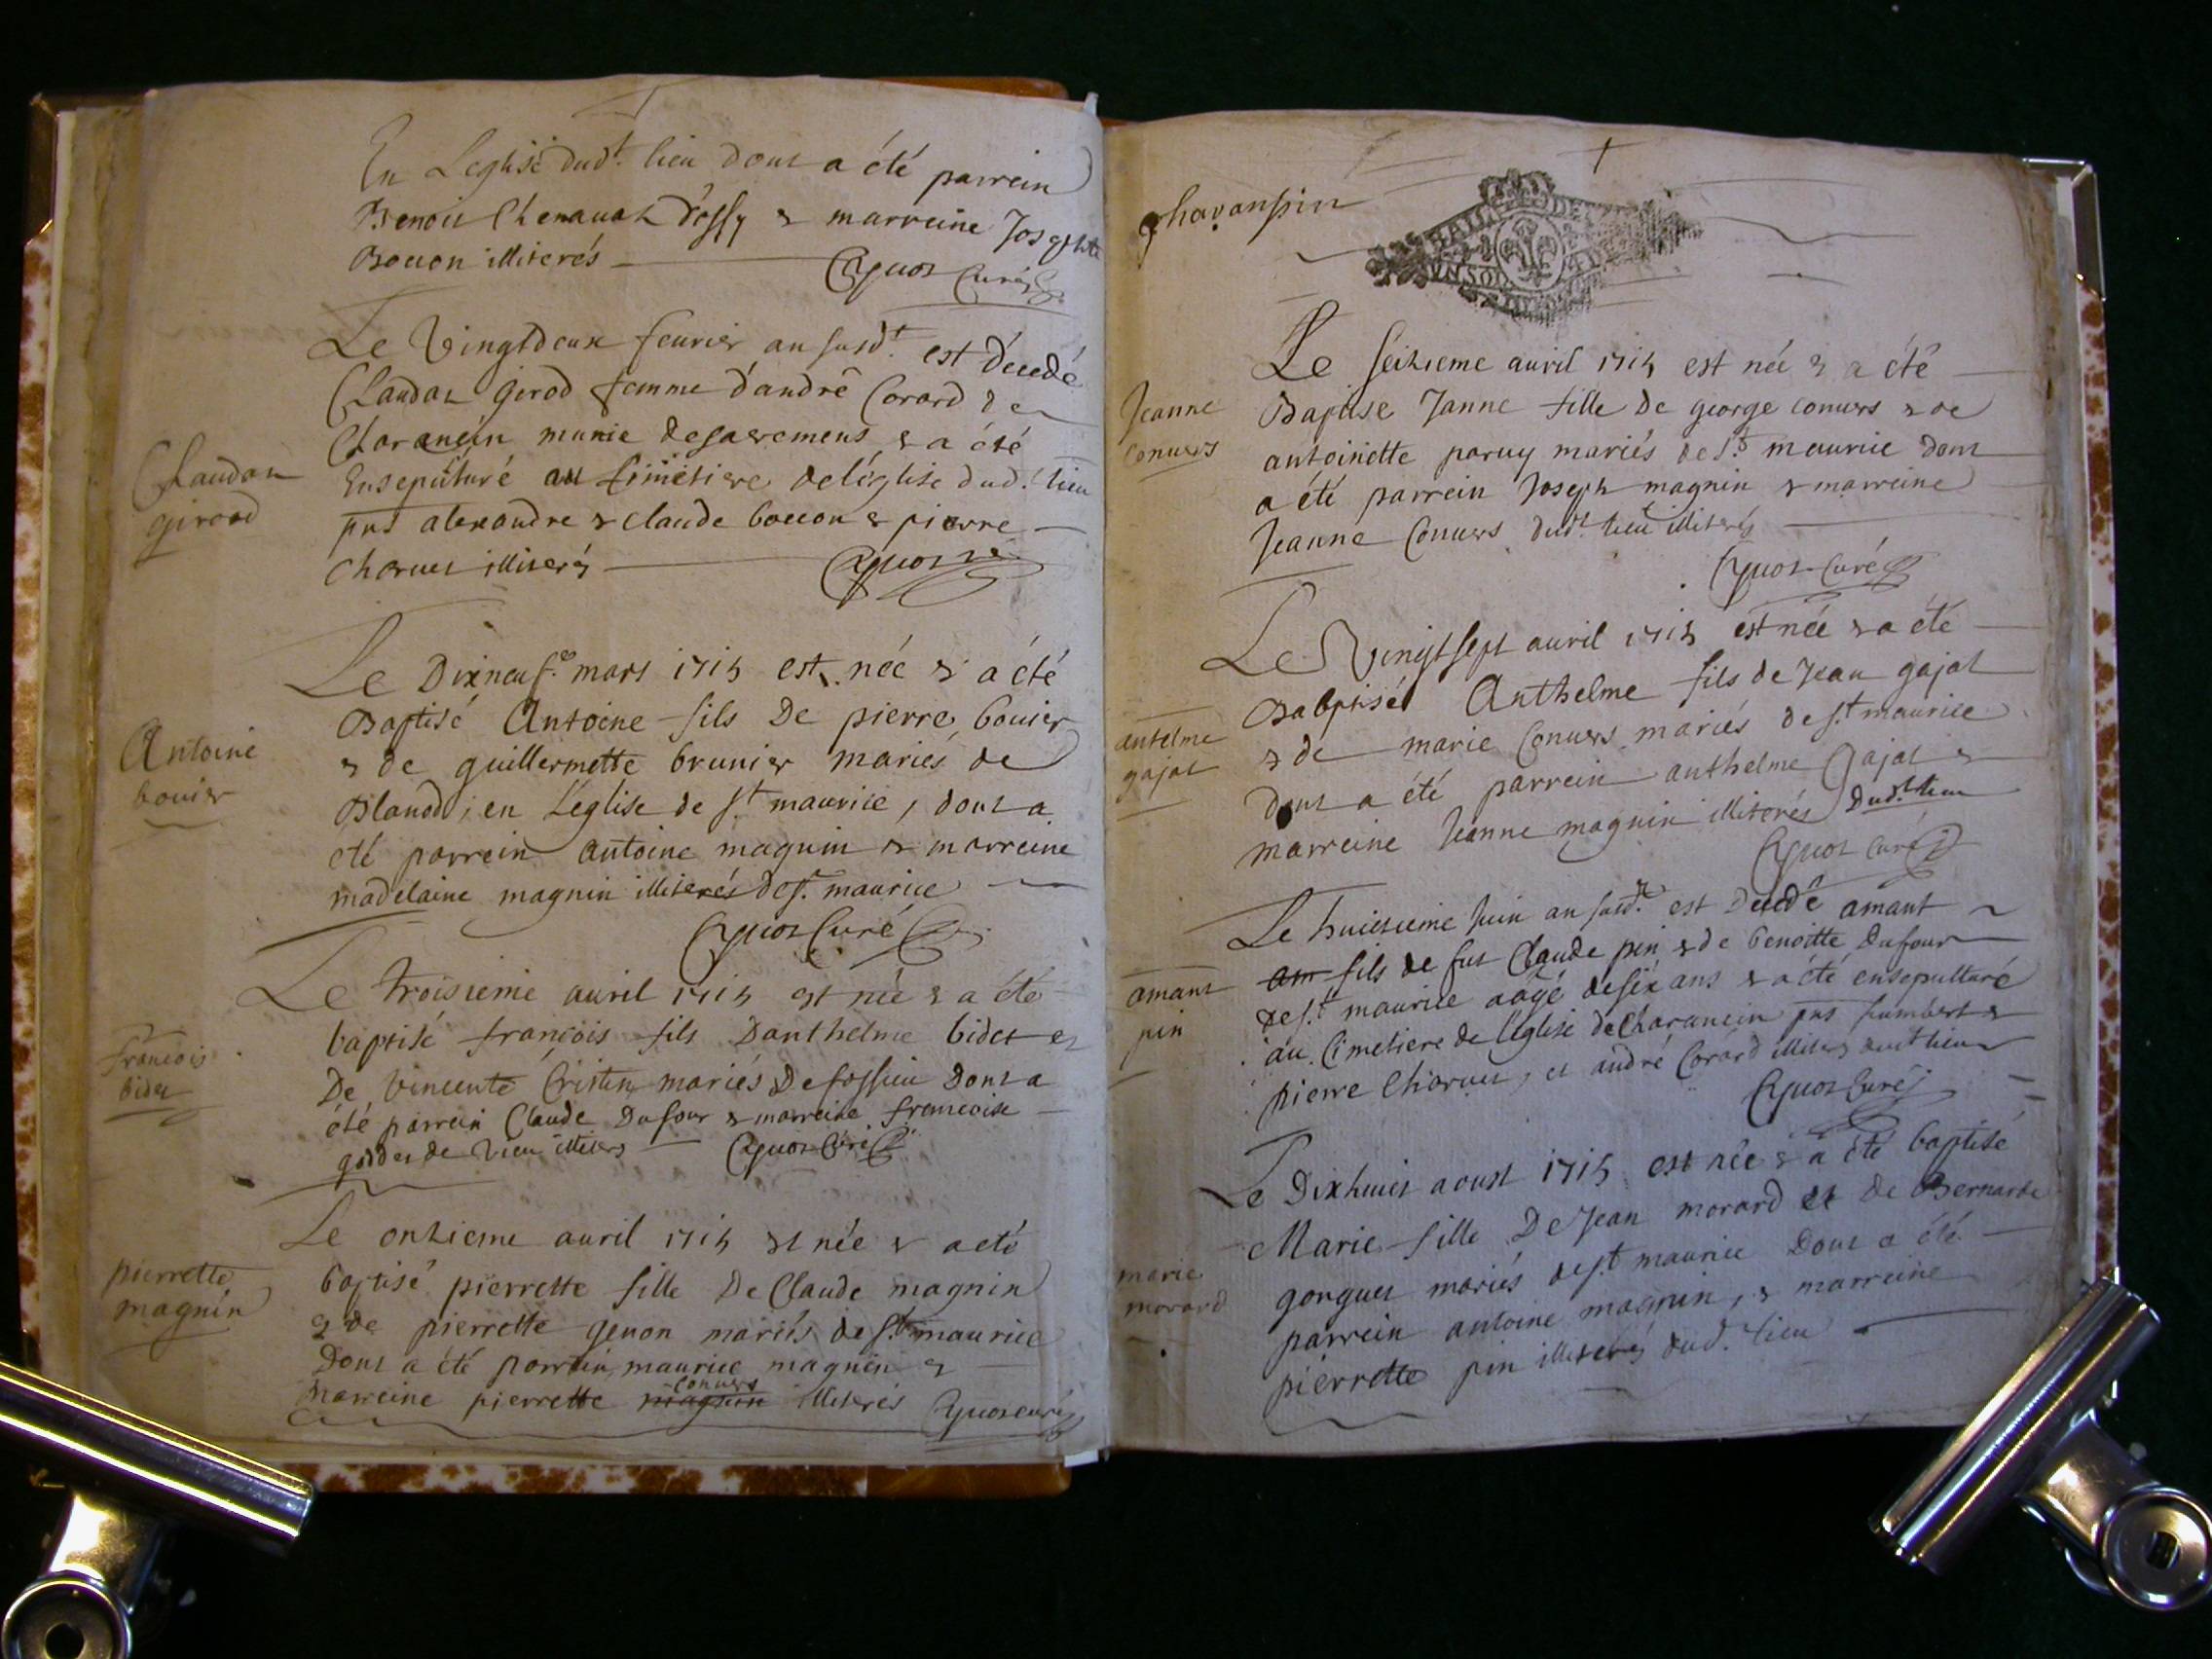 En Leglise dud.t lieu dont a été parrein
Benoit Chenauat d'ossy & marreine Josephte
Bouon illiterés Cyuot Curé
Le Vingtdeux feurier an susd.t est décedé
Claudat girod femme d'andré Corard de
Charancin munie de sacremens & a été
Claudat
girod
Ensepulturé au cimetiere de léglise dud.t lieu
pns alexandre & claude bouon & pierre
Charuet illiterés Cyuot curé
Le Dixneuf.e mars 1715 est née & a été
Antoine
bouier
Baptisé Antoine fils De pierre bouier
& de guillermette brunier mariés de
Blanod, en L'eglise de s.t maurice, dont a
été parrein antoine magnin & marreine
madelaine magnin illiterés de s.t maurice
Cyuot Curé
Le troisieme auril 1715 est née & a été
francois
bidet
baptisé françois fils Danthelme bidet et
De Vincente Cristin mariés De fossieu Dont a
été parrein Claude Dufour & marreine francoise
goddet de Vieu illiters Cyuot Curé
Le onzieme auril 1715 est née & a eté
pierrette
magnin
baptisé pierrette fille De Claude magnin
& de pierrette genon mariés de s.t maurice
Dont a été parrein maurice magnin &
conuers
marreine pierrette magnin illiterés Cyuot curé
Le seizieme auril 1715 est née & a été
Jeanne
conuers
Baptise Janne fille de george conuers & de
antoinette paruy mariés de s.t maurice dont
a été parrein Joseph magnin & marreine
Jeanne Conuers dud.t lieu illiterés
Cyuot Curé
Le Vingtsept auril 1715 est née & a été
antelme
gajat
Babptisé Anthelme fils de Jean gajat
& de marie Conuers mariés de s.t maurice
dont a été parrein anthelme gajat &
marreine Jeanne magnin illiterés Dud.t lieu
Cyuot curé
Le huictieme Juin an susd.t est Decedé amant
amant
pin
am fils de fut Claude pin & de benoitte Dufour
de s.t maurice aâgé de six ans & a été ensepulturé
au Cimetiere de l'eglise de Charancin pns humbert &
pierre Charuet, et andré Corard illiters dud.t lieu
Cyuot Curé
Le Dixhuict aoust 1715 est née & a été baptisé
marie
morard
Marie fille De Jean morard et de Bernarde
gonguet mariés de s.t maurice Dont a été
parrein antoine magnin, & marreine
pierrette pin illiterés dud.t lieu